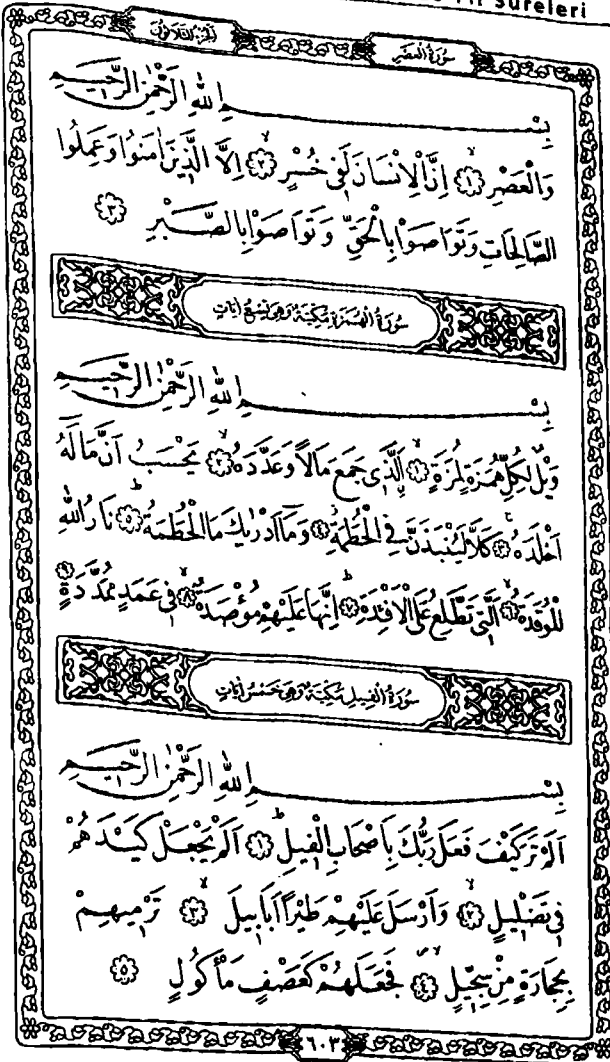 Sûreleri
سُورَةُ الْعَصْرِ
اَلْجُزْءُ الثَّلَاثُونَ
بِسْمِ اللهِ الرَّحْمٰنِ الرَّحِيمِ
وَالْعَصْرِ ﴿١﴾ اِنَّ الْاِنْسَانَ لَفِى خُسْرٍ ﴿٢﴾ اِلَّا الَّذِينَ اٰمَنُوا وَعَمِلُوا
الصَّالِحَاتِ وَتَوَاصَوْا بِالْحَقِّ وَتَوَاصَوْا بِالصَّبْرِ ﴿٣﴾
سُورَةُ الْهُمَزَةِ مَكِّيَّةٌ وَهِىَ تِسْعُ اٰيَاتٍ
بِسْمِ اللهِ الرَّحْمٰنِ الرَّحِيمِ
وَيْلٌ لِكُلِّ هُمَزَةٍ لُمَزَةٍ ﴿١﴾ اَلَّذِى جَمَعَ مَالًا وَعَدَّدَهُ ﴿٢﴾ يَحْسَبُ اَنَّ مَالَهُ
اَخْلَدَهُ ﴿٣﴾ كَلَّا لَيُنْبَذَنَّ فِى الْحُطَمَةِ ﴿٤﴾ وَمَا اَدْرٰيكَ مَا الْحُطَمَةُ ﴿٥﴾ نَارُ اللهِ
الْمُوقَدَةُ ﴿٦﴾ اَلَّتِى تَطَّلِعُ عَلَى الْاَفْئِدَةِ ﴿٧﴾ اِنَّهَا عَلَيْهِمْ مُؤْصَدَةٌ ﴿٨﴾ فِى عَمَدٍ مُمَدَّدَةٍ ﴿٩﴾
سُورَةُ الْفِيلِ مَكِّيَّةٌ وَهِىَ خَمْسُ اٰيَاتٍ
بِسْمِ اللهِ الرَّحْمٰنِ الرَّحِيمِ
اَلَمْ تَرَ كَيْفَ فَعَلَ رَبُّكَ بِاَصْحَابِ الْفِيلِ ﴿١﴾ اَلَمْ يَجْعَلْ كَيْدَهُمْ
فِى تَضْلِيلٍ ﴿٢﴾ وَاَرْسَلَ عَلَيْهِمْ طَيْرًا اَبَابِيلَ ﴿٣﴾ تَرْمِيهِمْ
بِحِجَارَةٍ مِنْ سِجِّيلٍ ﴿٤﴾ فَجَعَلَهُمْ كَعَصْفٍ مَأْكُولٍ ﴿٥﴾
٦٠٣